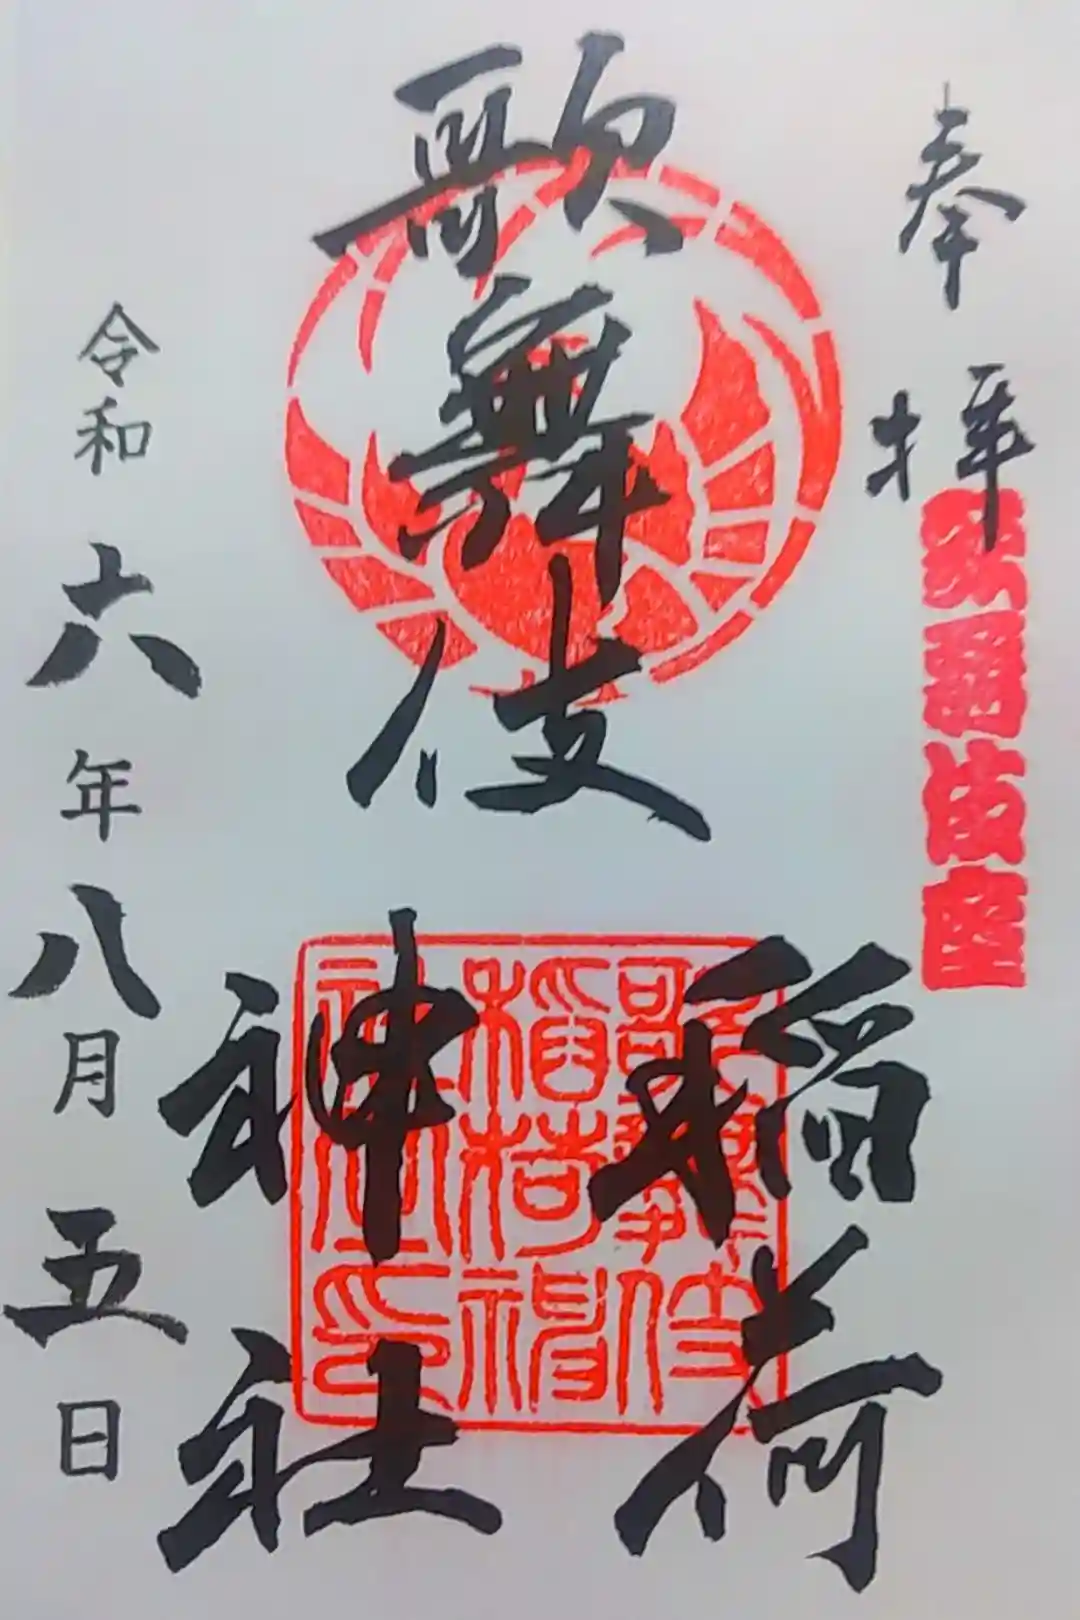 奉拝
歌舞伎座
歌舞伎
稲荷
神社
歌舞伎
稲荷神
社印
令和六年八月五日